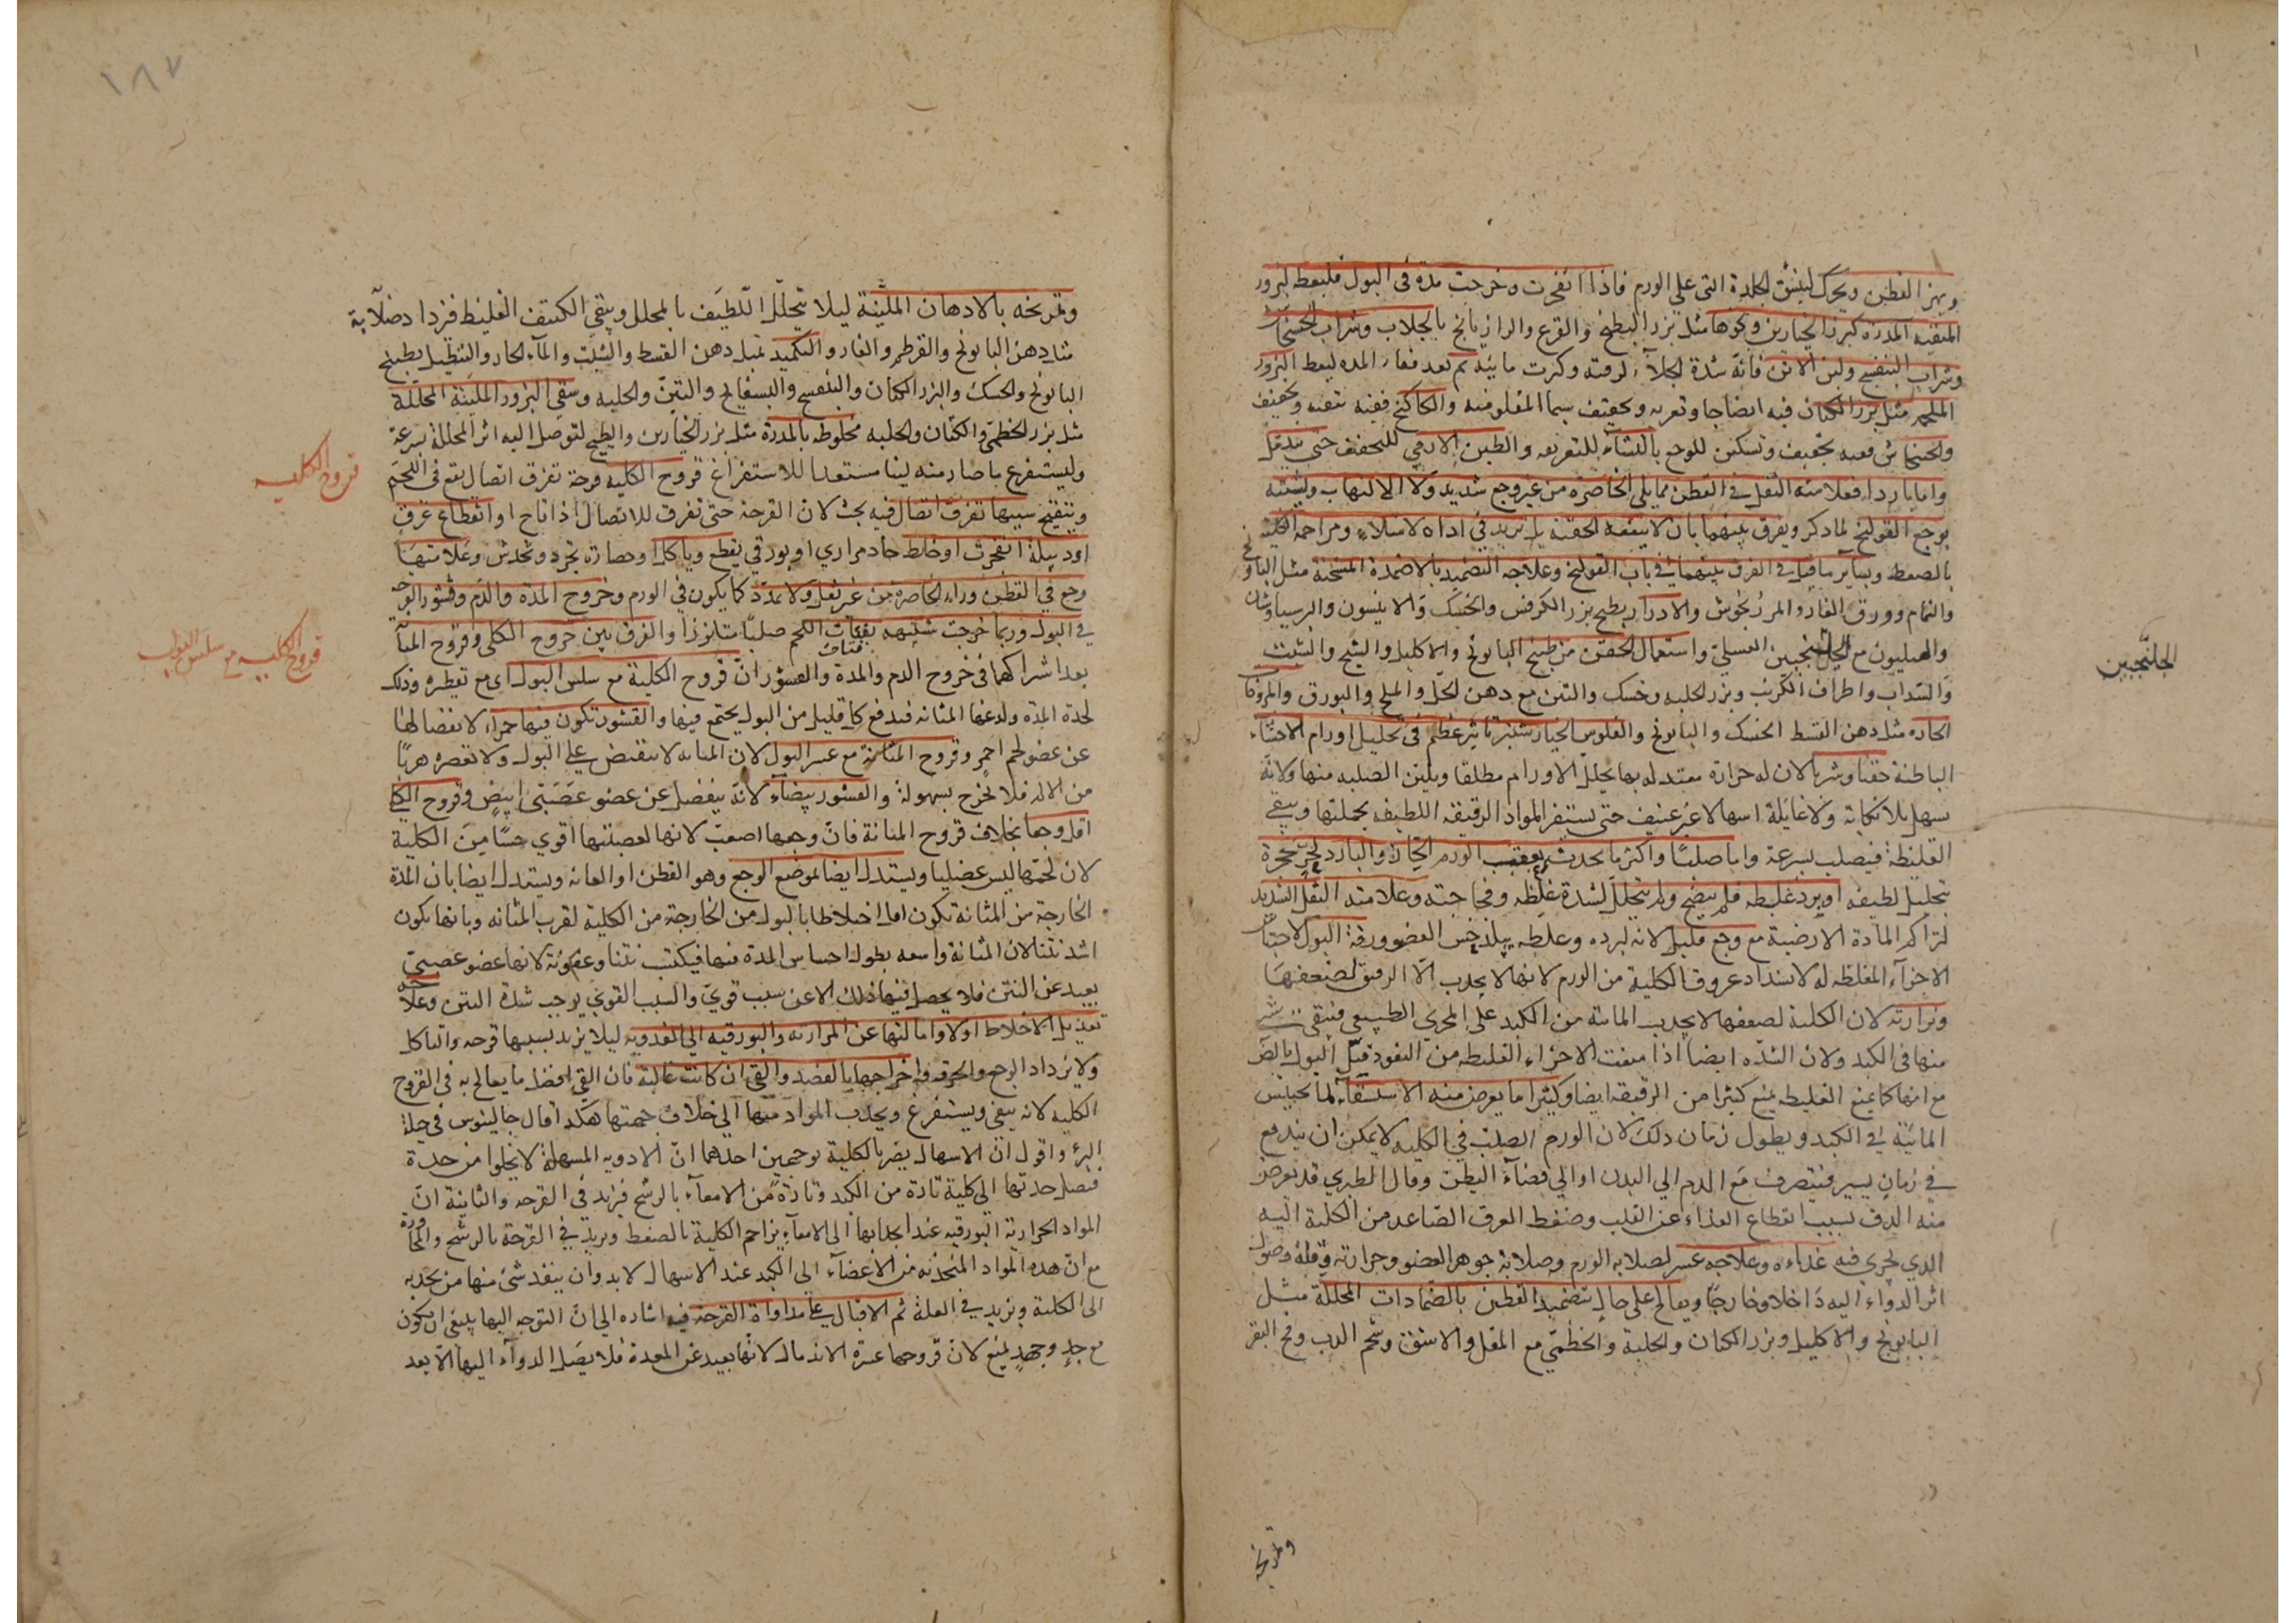 ويهز القطن ويحرك لينشق الجلدة التي على الورم فاذا انفجرت وخرجت مدة في البول فليعط البزور
المنقية المدرة كبزر الخيارين ونحوها مثل بزر البطيخ والقرع والرازيانج بالجلاب وشراب الخشخاش
وشراب البنفسج ولبن الاتن فانه شدة لجلائه لرقته وكثرت مائيته ثم بعد نقاء المده ليعط البزور
الملحمه مثل بزر الكتان فيه انضاجا وتغريه وتجفيف سيما المقلو منه والكاكنج ففيه تنقيه وتجفيف
والخشخاش ففيه تجفيف وتسكين للوجع بالنشآء للتغريه والطين الارمني للتجفيف حتى يندمل
واما بارد فعلامته الثقل في القطن مما يلي الخاصرة من غير وجع شديد ولا الالتهاب ويشتبه
بوجع القولنج لما ذكر ويفرق بينهما بان لا ينفعه الحقنة بل تزيد في اذاه لامتلاء ومزاحمه الكلية
بالضغط وبسآير ما قيل في الفرق بينهما في باب القولنج وعلاجه التضميد بالاضمدة المسخنة مثل البابونج
والنمام وورق الغار والمرزنجوش والادرار بطبيخ بزر الكرفس والحسك والانيسون والبرسياوشان
والهليون مع الجلنجبين العسلي واستعمال الحقن من طبيخ البابونج والاكليل والشيح والشبت
الجلنجبين
والسداب واطراف الكرنب وبزر الحلبه وحسك والتين مع دهن الخل والملح والبورق والمروخات
الحاره مثل دهن القسط الحسك والبابونج والفلوس الخيارشنبر تاثير عظيم في تحليل اورام الاحشاء
الباطنة حقنا وشربا لان له حرارة معتدله بها يحلل الاورام مطلقا ويلين الصلبه منها ولانه
يسهل بلا نكاية ولا غايلة اسهالا غير عنيف حتى يستفرغ المواد الرقيقه اللطيفه بجملتها ويبقي
الغليظة فيصلب بسرعة واما صلبا واكثر ما يحدث بعقيب الورم الحار والبارد
بتحليل لطيفه او يبرد غليظه فلم ينضج ولم يتحلل لشدة غلظه وفجاجته وعلامته الثقل الشديد
لتراكم المادة الارضية مع وجع قليل لانه لبرده وغلظه يبلد حس العضو ورقة البول لاحتباس
الاجزاء المغلظه له لانسداد عروق الكلية من الورم لانها لا يجذب الا الرقيق لضعفها
ونزارته لان الكلية لضعفها لا يجذب المائية من الكبد على المجرى الطبيعي فيبقى شي
منها في الكبد ولان السده ايضا اذا منعت الاجزاء الغليظه من النفوذ قبل البول بالضرورة
مع انها كما يمنع الغليظه يمنع كثيرا من الرقيقه ايضا وكثيرا ما يعرض منه الاستسقآء لما يحتبس
المائية في الكبد ويطول زمان ذلك لان الورم الصلب في الكليه لا يمكن ان يندفع
في زمان يسير فينصرف مع الدم الى البدن او الى فضآء البطن وقال الطبري قد يعرض
منه الدق بسبب انقطاع الغذاء عن القلب وضغط العرق الصاعد من الكلية اليه
الذي يجري فيه غذاءه وعلاجه عسر لصلابه الورم وصلابة جوهر العضو وحرارته وقلة وصول
اثر الدواء اليه داخلا وخارجا ويعالج على حال بتضميد القطن بالضمادات المحللة مثل
البابونج والاكليل وبزر الكتان والحلبة والخطمي مع المقل والاشق وشحم الدب ومخ البقر
وتمريخه
١٨٧
وتمريخه بالادهان الملينة ليلا يتحلل اللطيف بالمحلل ويبقى الكثيف الغليظ فيزداد صلابة
مثل دهن البابونج والقرطم والغار والتكميد بمثل دهن القسط والشبت والمآء الحار والتنطيل بطبيخ
البابونج والحسك والبزر الكتان والبنفسج والبسفايج والتين والحلبه وسقي البزور الملينة المحللة
مثل بزر الخطمي والكتان والحلبه مخلوطه بالمدرة مثل بزر الخيارين والبطيخ لتوصل اليه اثر المحللة بسرعة
وليستفرغ ما صار منه لينا مستعدا للاستفراغ قروح الكليه قرحة تفرق اتصال يقع في اللحم
قروح الكليه
ويتقيح سببها تفرق اتصال فيه بحث لان القرحة حتى تفرق للاتصال اذا تاخ او انقطاع عرق
او دبيلة انفجرت او خلط حاد مراري او بورقي يقطع وياكل او حصاة يجرد وتخدش وعلامتها
وجع في القطن وراء الخاصره من غير ثقل ولا تمدد كما يكون في الورم وخروج المدة والدم وقشور القرحه
في البول وربما خرجت شبيهه بفتات اللحم صلبا متلززا والفرق بين قروح الكلى وقروح المثانة
قروح الكليه مع سلس البول
بعد اشراكهما في خروج الدم والمدة والقشور ان قروح الكلية مع سلس البول اي مع تقطيره وذلك
لحدة المدة ولدغها المثانه فيدفع كل قليل من البول يجتمع فيها والقشور تكون فيها حمراء لانفصالها
عن عضو لحم احمر وقروح المثانة مع عسر البول لان المثانه لا ينقبض على البول ولا تعصره هربا
من الالم فلا يخرج بسهولة والقشور بيضآء لانه ينفصل عن عضو عصبي ابيض وقروح الكلى
اقل وجعا بخلاف قروح المثانة فان وجعها اصعب لانها لعصبتها اقوي حسا من الكلية
لان لحمها ليس عضليا ويستدل ايضا بموضع الوجع وهو القطن او العانه ويستدل ايضا بان المدة
الخارجة من المثانة تكون اقل اختلاطا بالبول من الخارجة من الكلية لقرب المثانه وبانها يكون
اشد نتنا لان المثانة واسعه يطول احتباس المدة فيها فيكتسب نتنا وعفونة لانها عضو عصبي
بعيد عن النتن فلا يحصل فيها ذلك الا عن سبب قوي والسبب القوي يوجب شدة النتن وعلاجه
تعديل الاخلاط اولا وامالتها عن المرارته والبورقيه الى العذوبه ليلا يزيد بسببها قرحه والتاكل
ولا يزداد الوجع والحرقه واخراجها بالفصد والقي ان كانت غالبة فان القي افضل ما يعالج به في القروح
الكليه لانه ينقي ويستفرغ ويجذب المواد منها الى خلاف جهتها هكذا قال جالينوس في حيلة
البرء واقول ان الاسهال يضر بالكلية بوجهين احدهما ان الادويه المسهلة لا يخلوا من حدة
فيصل حدتها الى كلية تارة من الكبد وتارة من الامعآء بالرشح فيزيد في القرحه والثانية ان
المواد الحرارية البورقيه عند انجذابها الى الامعآء يزاحم الكلية بالضغط ويزيد في القرحة بالرشح والمجاورة
مع ان هذه المواد المنجذبه من الاعضآء الى الكبد عند الاسهال لا بد وان ينفذ شئ منها من حدبه
الى الكلية ويزيد في العلة ثم الاقبال على مداواة القرحة فيه اشاره الى ان التوجه اليها ينبغي ان يكون
مع جد وجهد بليغ لان قروحها عسرة الاندمال لانها بعيد عن المعدة فلا يصل الدوآء اليها الا بعد